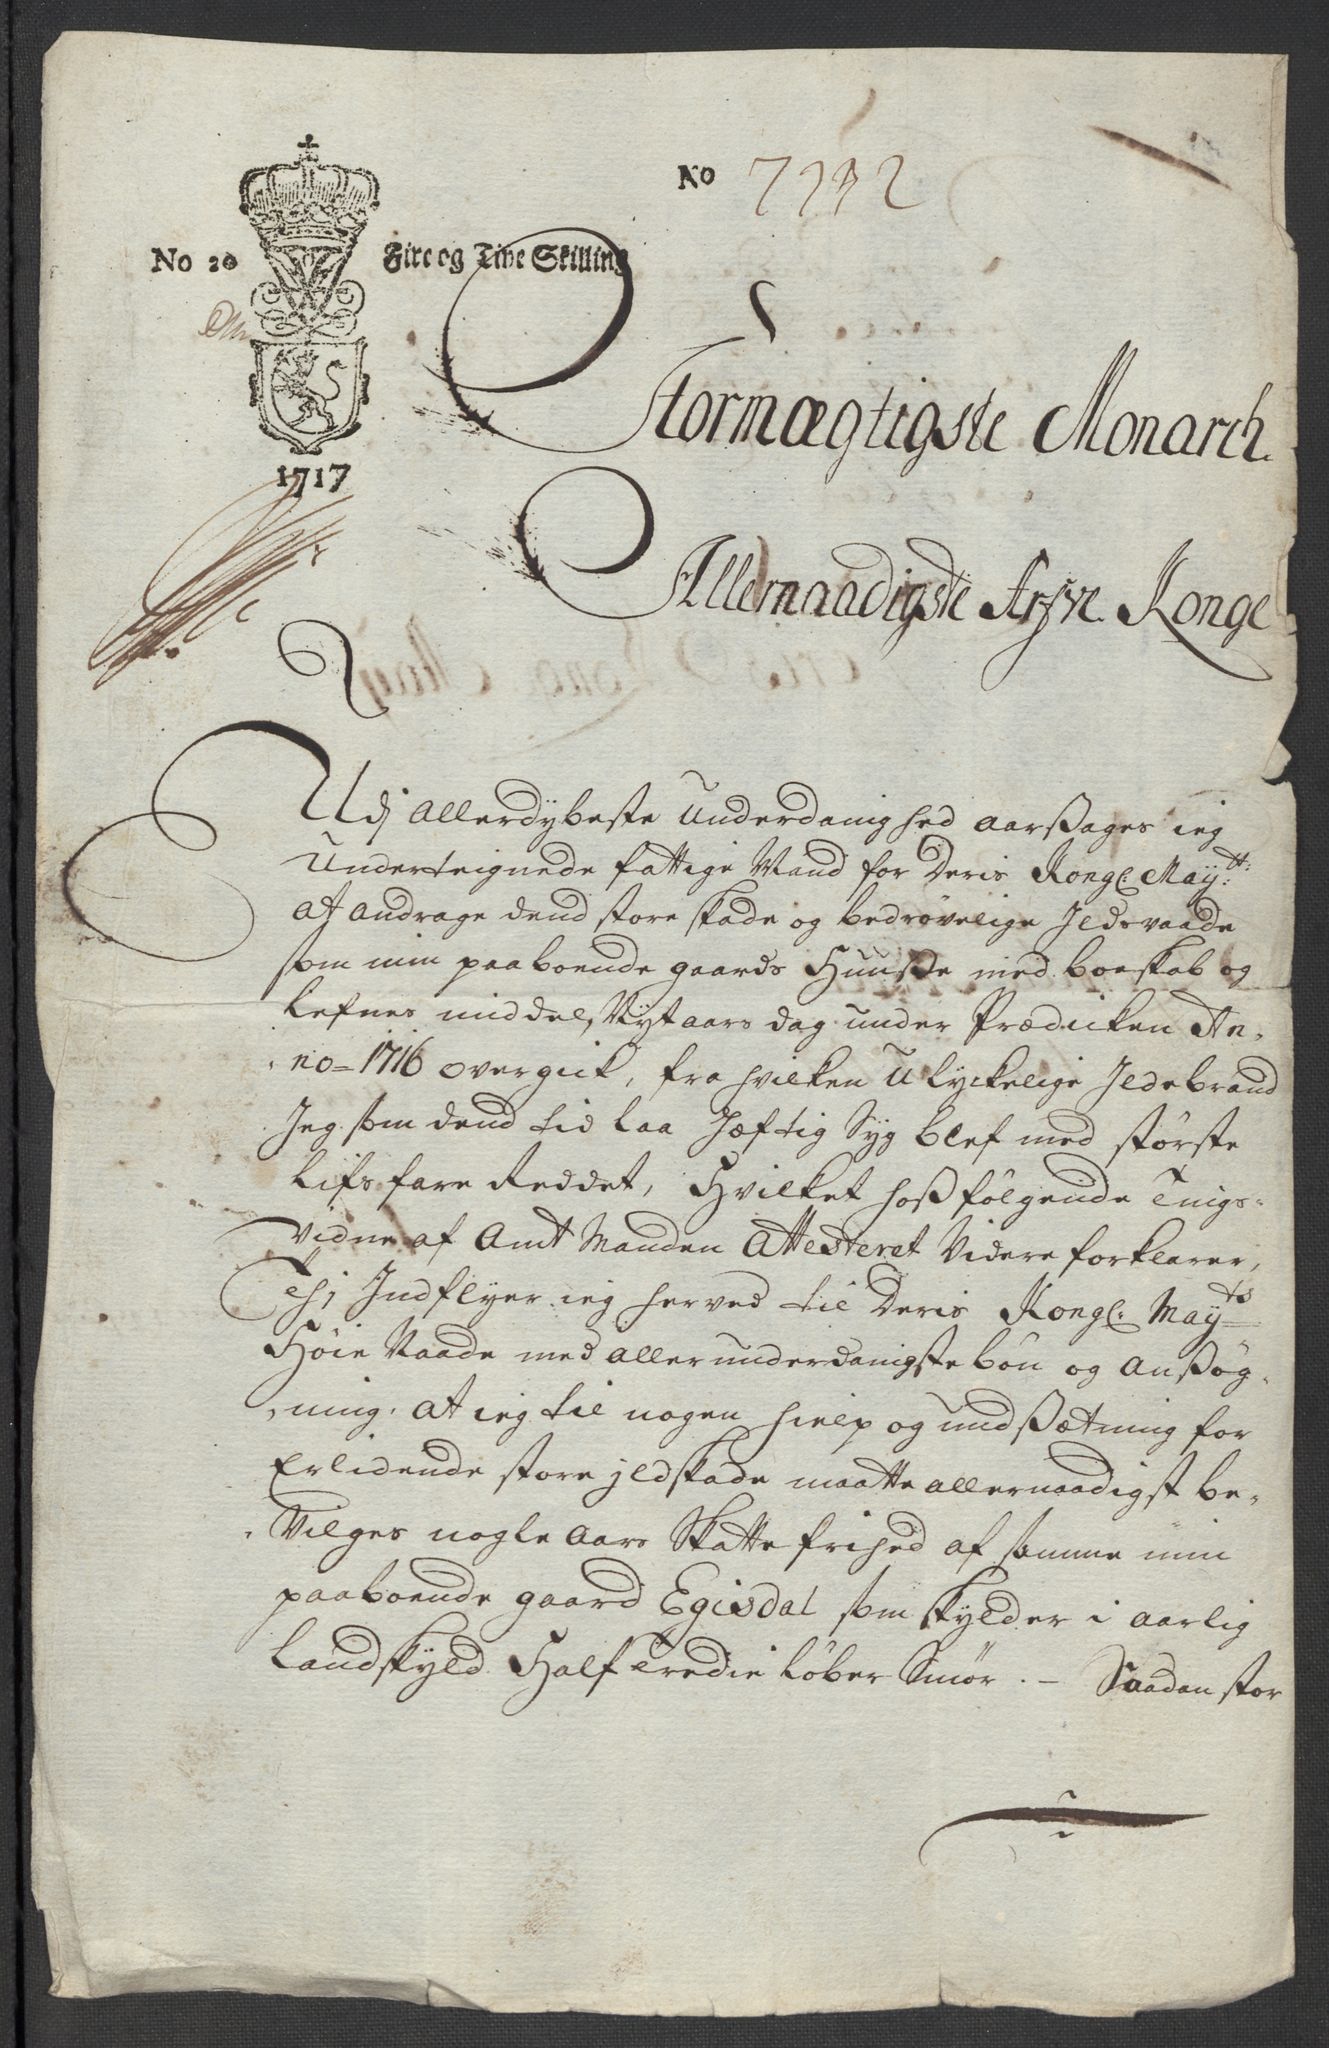 No 7192
No 20 Fire og Tive Skilling
1717
Stormægtigste Monarch.
Allernaadigste Arfve Konge
Udj allerdybeste Underdanighed aarsages ieg
Underteignede fattige Mand for Deris Kongl: May:tt:
at andrage dend store skade og bedrøvelige Ildsvaade
som min paaboende gaards Huusse med boeskab og
Lefnes middel, Nytaars dag under Prædicken An-
no = 1716 overgick, fra hvilken Ulyckelige Ildebrand
Jeg som dend tid laa hæftig Syg blef med største
Lifs fare Reddet, Hvilket hosfølgende Tings-
Vidne af Amt Manden Attesteret Videre forklarer,
Thj Indflyer ieg herved til Deris Kongl: Mayts
Høie Naade med allerunderdanigste bøn og ansøg-
ning. at ieg til nogen hielp og undsætning for
Erlidende store jldskade maatte allernaadigst be-
Vilges nogle aars Skatte frihed af samme min
paaboende gaard Egisdal som skylder i aarlig
Landskyld Half Tredie Løber Smør. – Saadan stor